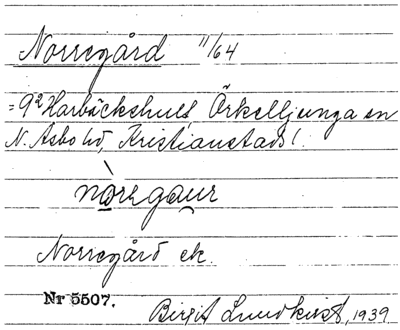 Norregård 11/64
= 9² Harbäckshult, Örkelljunga sn
N. Åsbo hd, Kristianstads l.
nòrægaur
Norregård ek.
Nr 5507.
Birgit Lundkvist, 1939